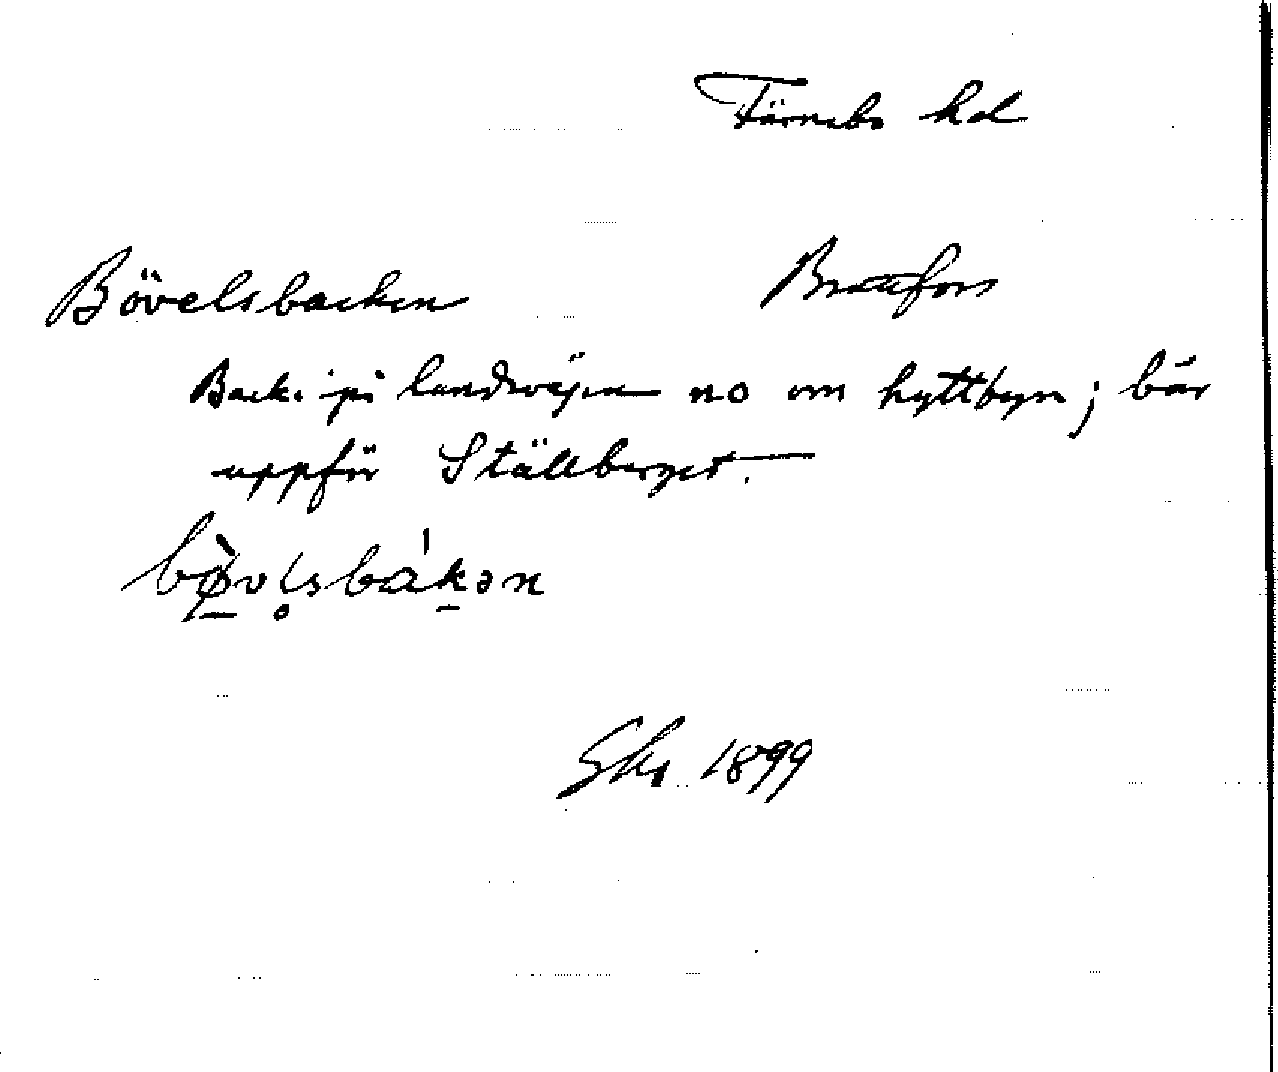 Färnebo hd
Bövelsbacken Brattfors
Backe på landsvägen no om hyttbyn; bär
uppför Ställberget.
bø̀vl̥sbákən
Skr 1899